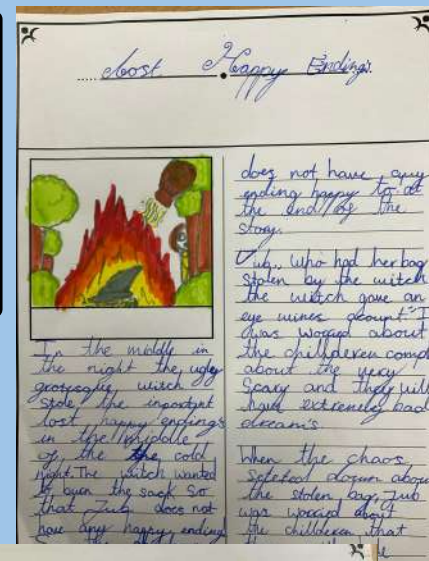 Lost Happy Endings
In the middle in
the night the ugly
grotesque witch
stole the inportant
lost happy endings
in the middle
of the the cold
night. The witch wanted
to burn the sack so
that Jub does not
have any happy ending
does not have any
ending happy to at
the end of the
story.
Jub, who had her bag
stolen by the witch
the witch gave an
eye wines acount "I
was worried about
the chillderen compl
about the very
scary and they will
have extremely bad
dream's.
When the chaos
down abou
the stolen bag, Jub
was worried about
the chillderen that